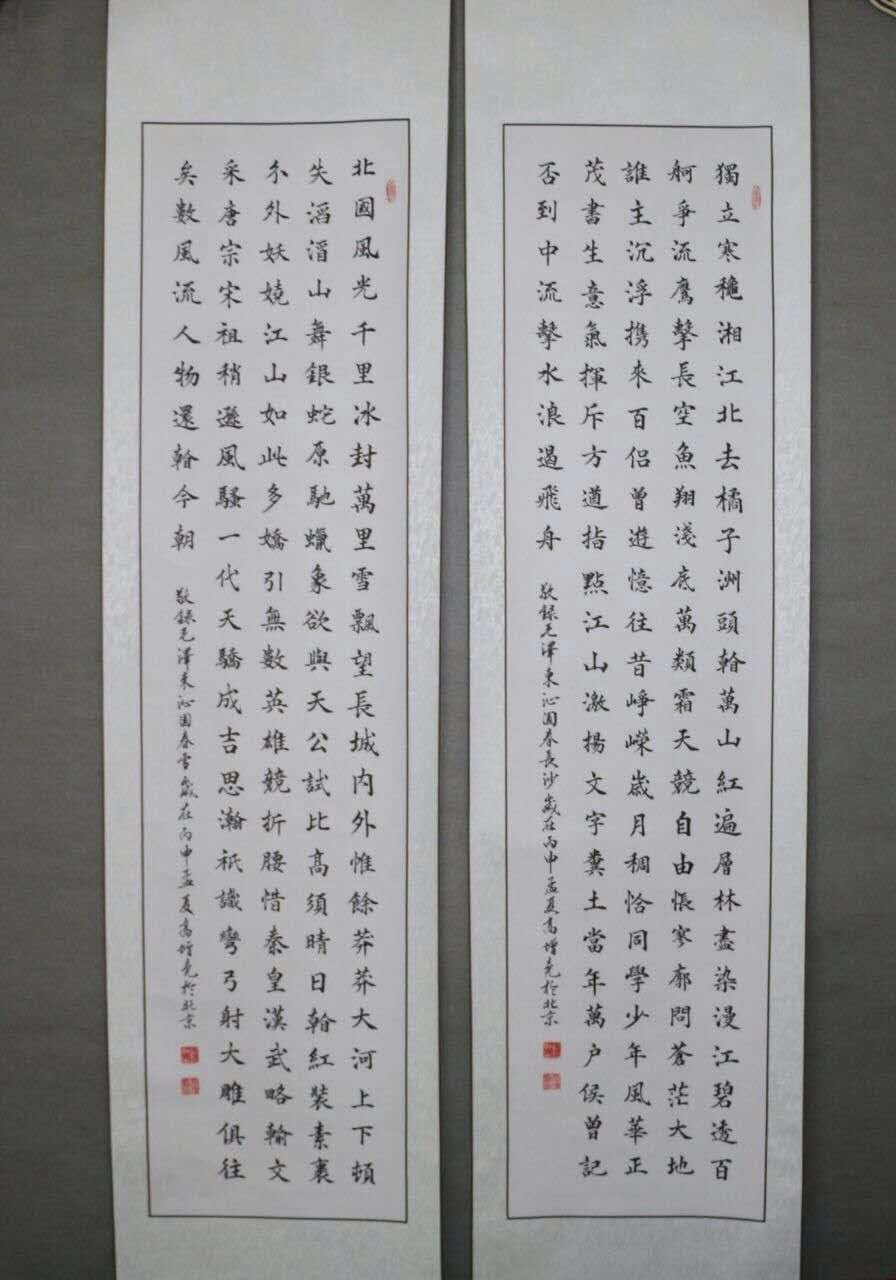 獨立寒穐湘江北去橘子洲頭看萬山紅遍層林盡染漫江碧透百
舸爭流鷹擊長空魚翔淺底萬類霜天競自由悵寥廓問蒼茫大地
誰主沉浮携來百侶曾遊憶往昔崢嶸歲月稠恰同學少年風華正
茂書生意氣揮斥方遒指點江山激揚文字糞土當年萬户侯曾記
否到中流擊水浪遏飛舟
敬錄毛澤東沁園春長沙歲在丙申孟夏高增亮於北京
北國風光千里冰封萬里雪飄望長城内外惟餘莽莽大河上下頓
失滔滔山舞銀蛇原馳蠟象欲與天公試比高須晴日看紅裝素裹
分外妖嬈江山如此多嬌引無數英雄競折腰惜秦皇漢武略輸文
采唐宗宋祖稍遜風騷一代天驕成吉思瀚祇識彎弓射大雕俱往
矣數風流人物還看今朝
敬錄毛澤東沁園春雪歲在丙申孟夏高增亮於北京